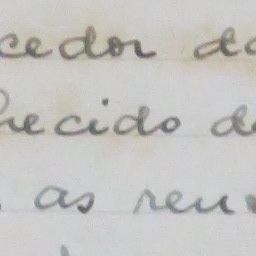 cedor da
hecido de
as reu